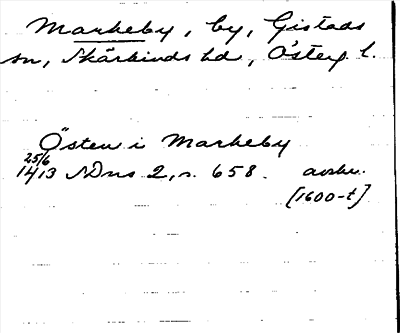 Markeby, by, Gistads
sn, Skärkinds hd, Österg. l.
Östen i Markeby
25/6
1413 SDns 2, s. 658. avskr.
[1600-t]